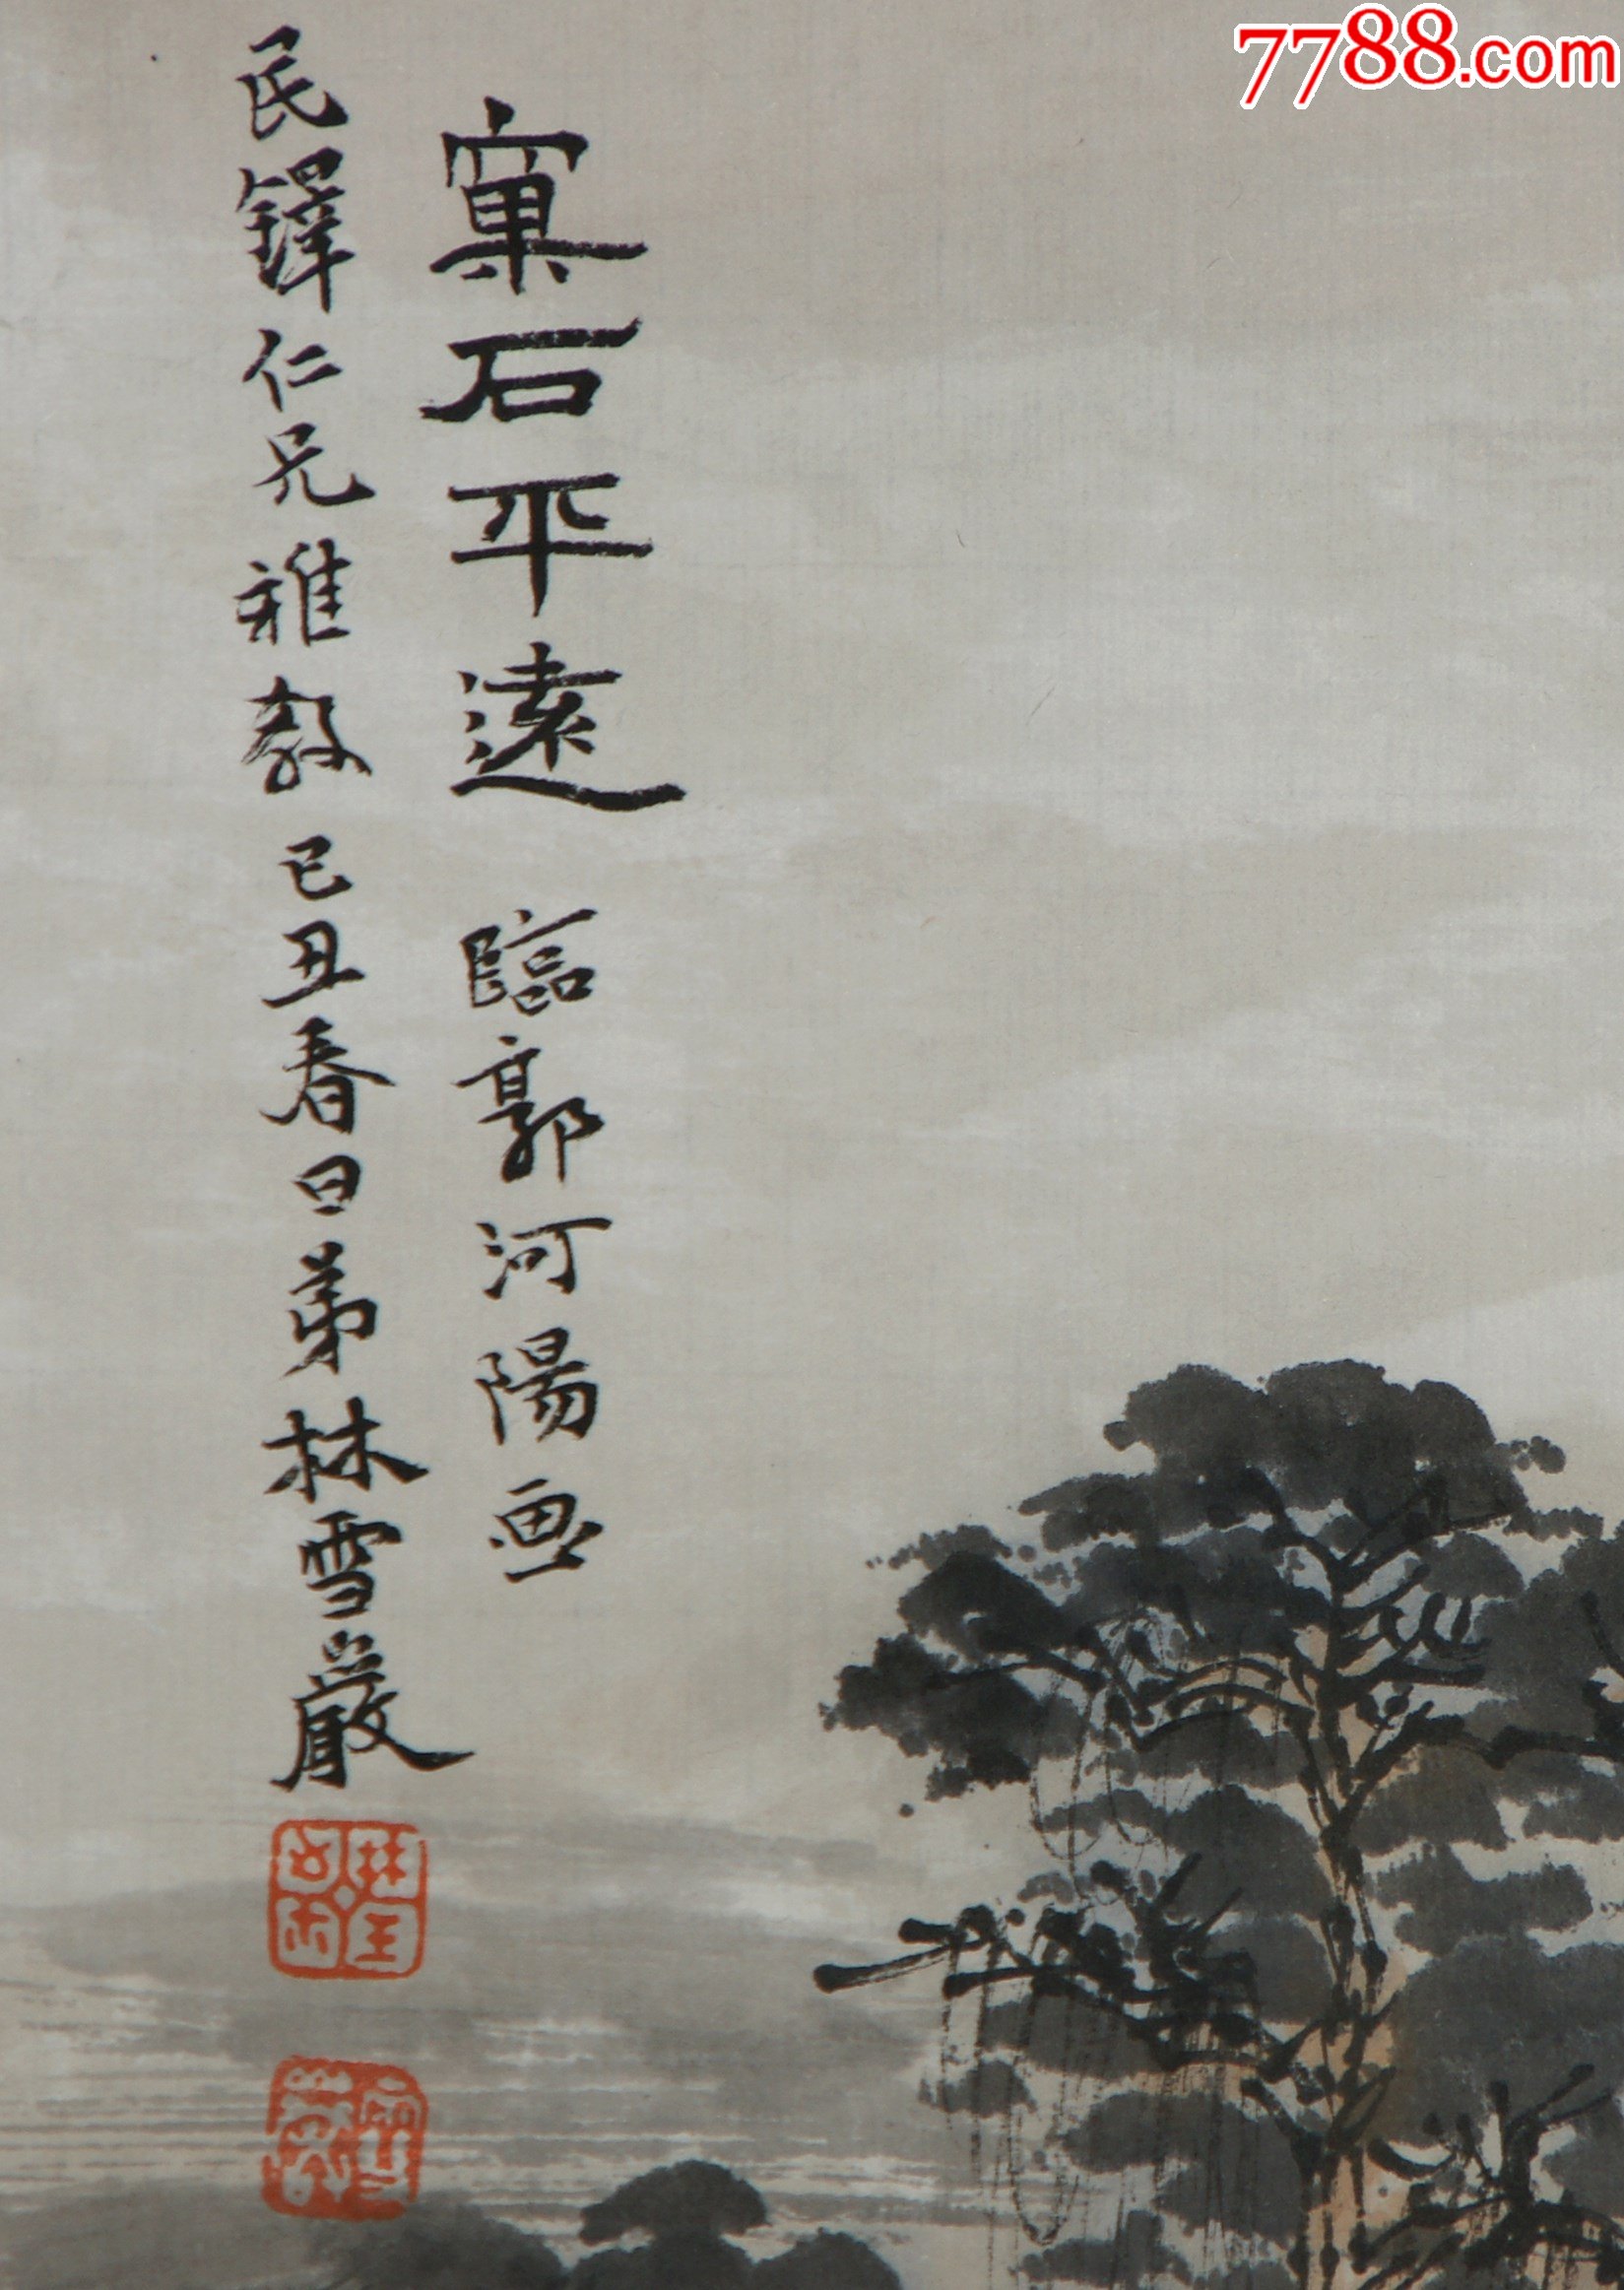 7788.com
窠石平遠 臨郭河陽画
民鐸仁兄雅教 己丑春日弟林雪巖